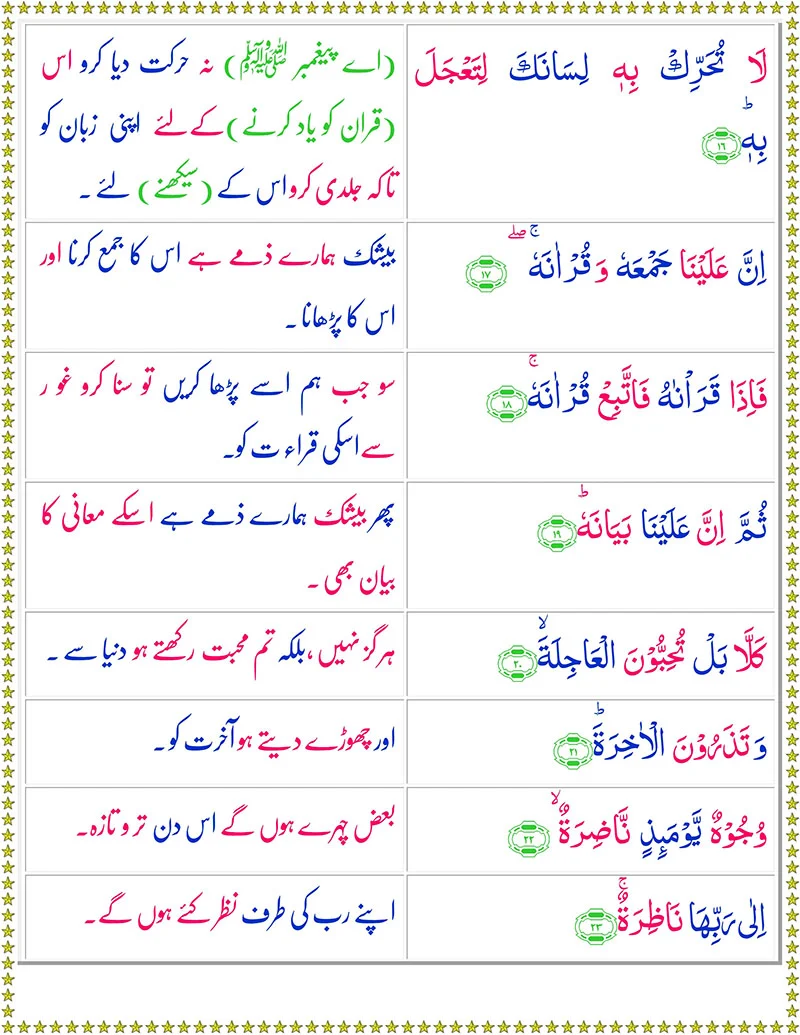 لَا تُحَرِّكْ بِهٖ لِسَانَكَ لِتَعْجَلَ
بِهٖؕ ۱۶
(اے پیغمبر ﷺ) نہ حرکت دیا کرو اس
(قران کو یاد کرنے) کےلئے اپنی زبان کو
تاکہ جلدی کرو اس کے (سیکھنے) لئے۔
اِنَّ عَلَيْنَا جَمْعَهٗ وَ قُرْاٰنَهٗ ۚۖ ۱۷
بیشک ہمارے ذمے ہے اس کا جمع کرنا اور
اس کا پڑھانا۔
فَاِذَا قَرَاْنٰهُ فَاتَّبِعْ قُرْاٰنَهٗۚ ۱۸
سو جب ہم اسے پڑھا کریں تو سنا کرو غور
سے اسکی قراءت کو۔
ثُمَّ اِنَّ عَلَيْنَا بَيَانَهٗؕ ۱۹
پھر بیشک ہمارے ذمے ہے اسکے معانی کا
بیان بھی۔
كَلَّا بَلْ تُحِبُّوْنَ الْعَاجِلَةَۙ ۲۰
ہرگز نہیں، بلکہ تم محبت رکھتے ہو دنیا سے۔
وَ تَذَرُوْنَ الْاٰخِرَةَؕ ۲۱
اور چھوڑے دیتے ہو آخرت کو۔
وُجُوْهٌ يَّوْمَىِٕذٍ نَّاضِرَةٌۙ ۲۲
بعض چہرے ہوں گے اس دن تر و تازہ۔
اِلٰى رَبِّهَا نَاظِرَةٌۚ ۲۳
اپنے رب کی طرف نظر کئے ہوں گے۔